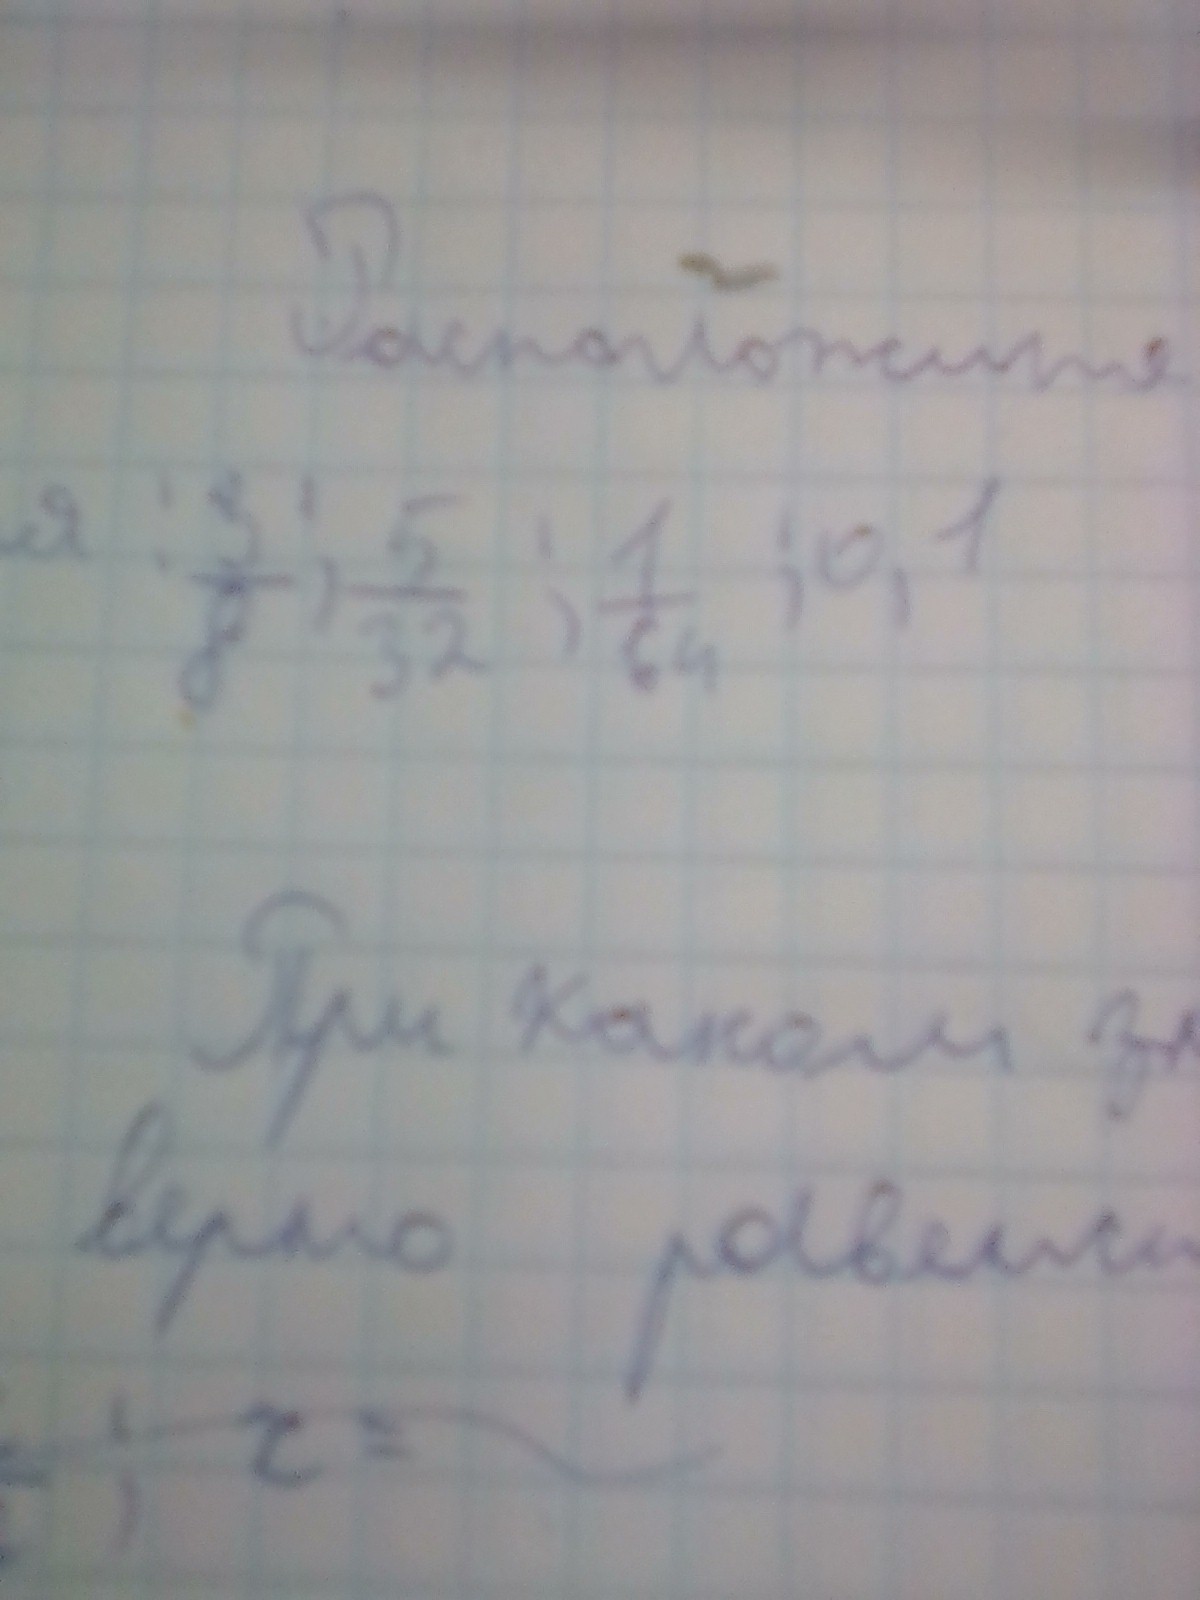 Расположите
ия : 3/8 ; 5/32 ; 1/64 ; 0,1
При каком зн
верно равенст
; r =